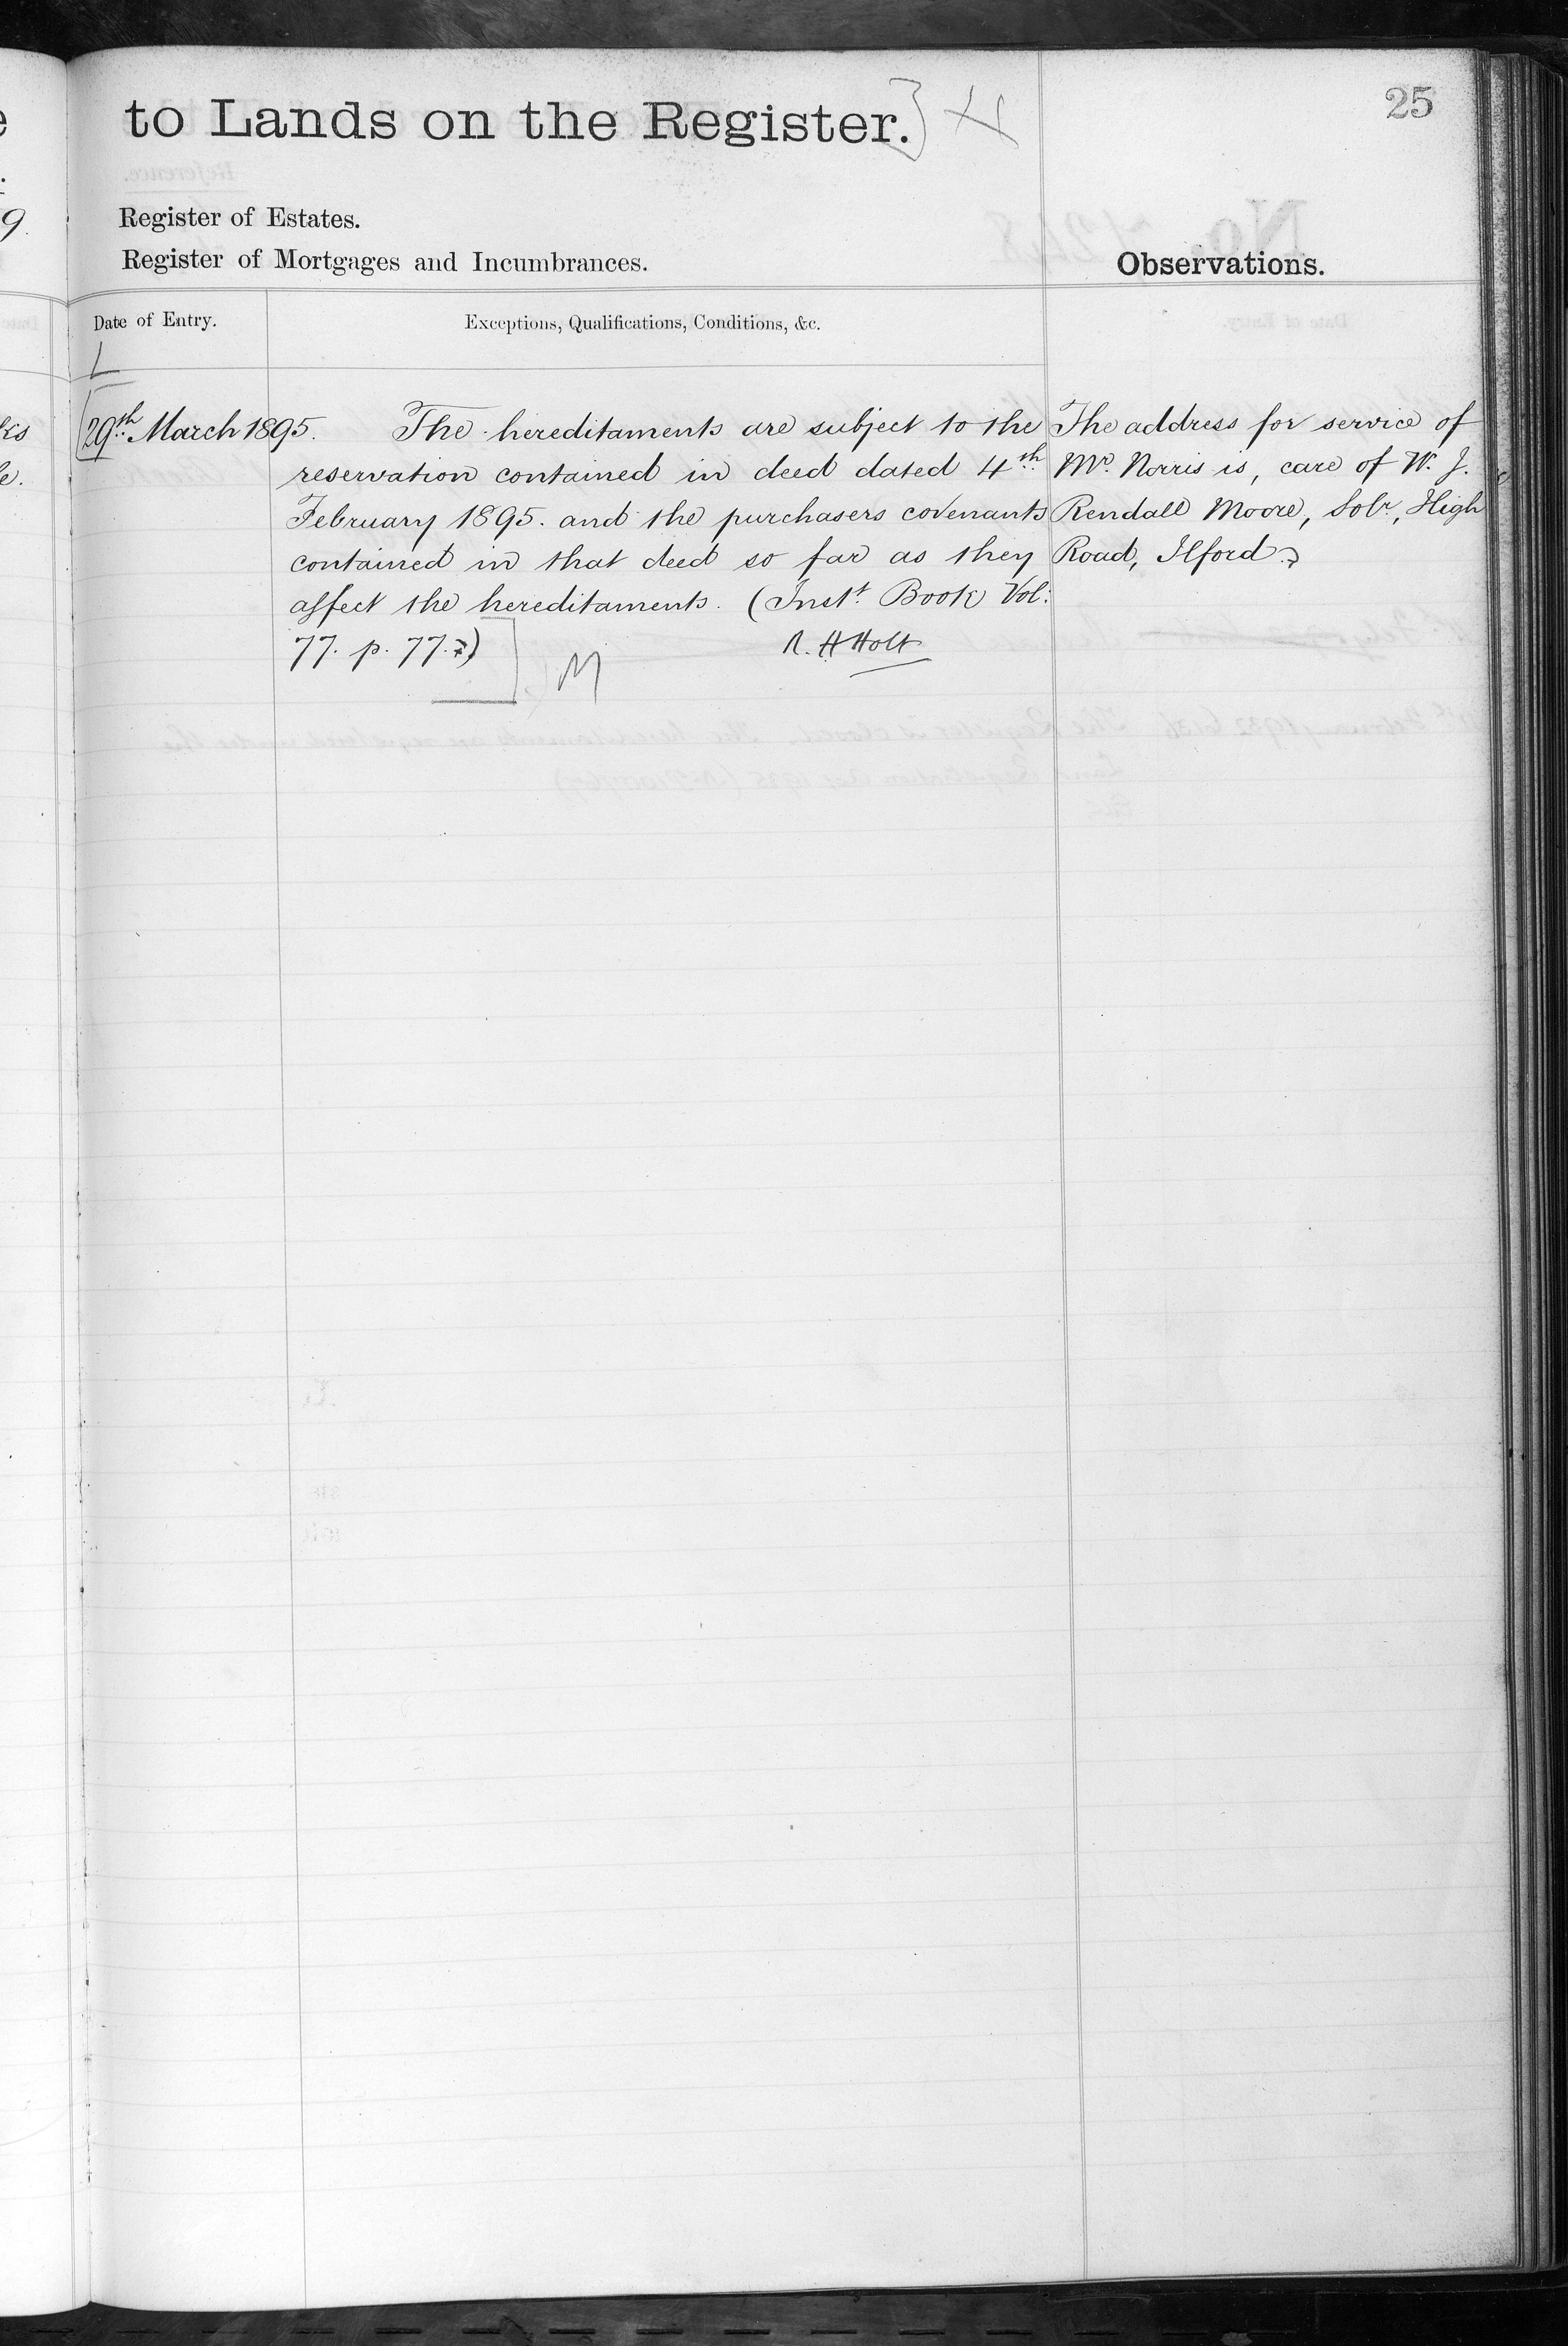 to Lands on the Register.
25
Register of Estates.
Register of Mortgages and Incumbrances.
Observations.
Date of Entry.
Exceptions, Qualifications, Conditions, &c.
29th March 1895.
The hereditaments are subject to the
reservation contained in deed dated 4th
February 1895. and the purchasers covenants
contained in that deed so far as they
affect the hereditaments. (Inst. Book Vol:
77. p. 77.)
M
R. H Holt
The address for service of
Mr. Norris is, care of W. J.
Rendall Moore, Solr, High
Road, Ilford.